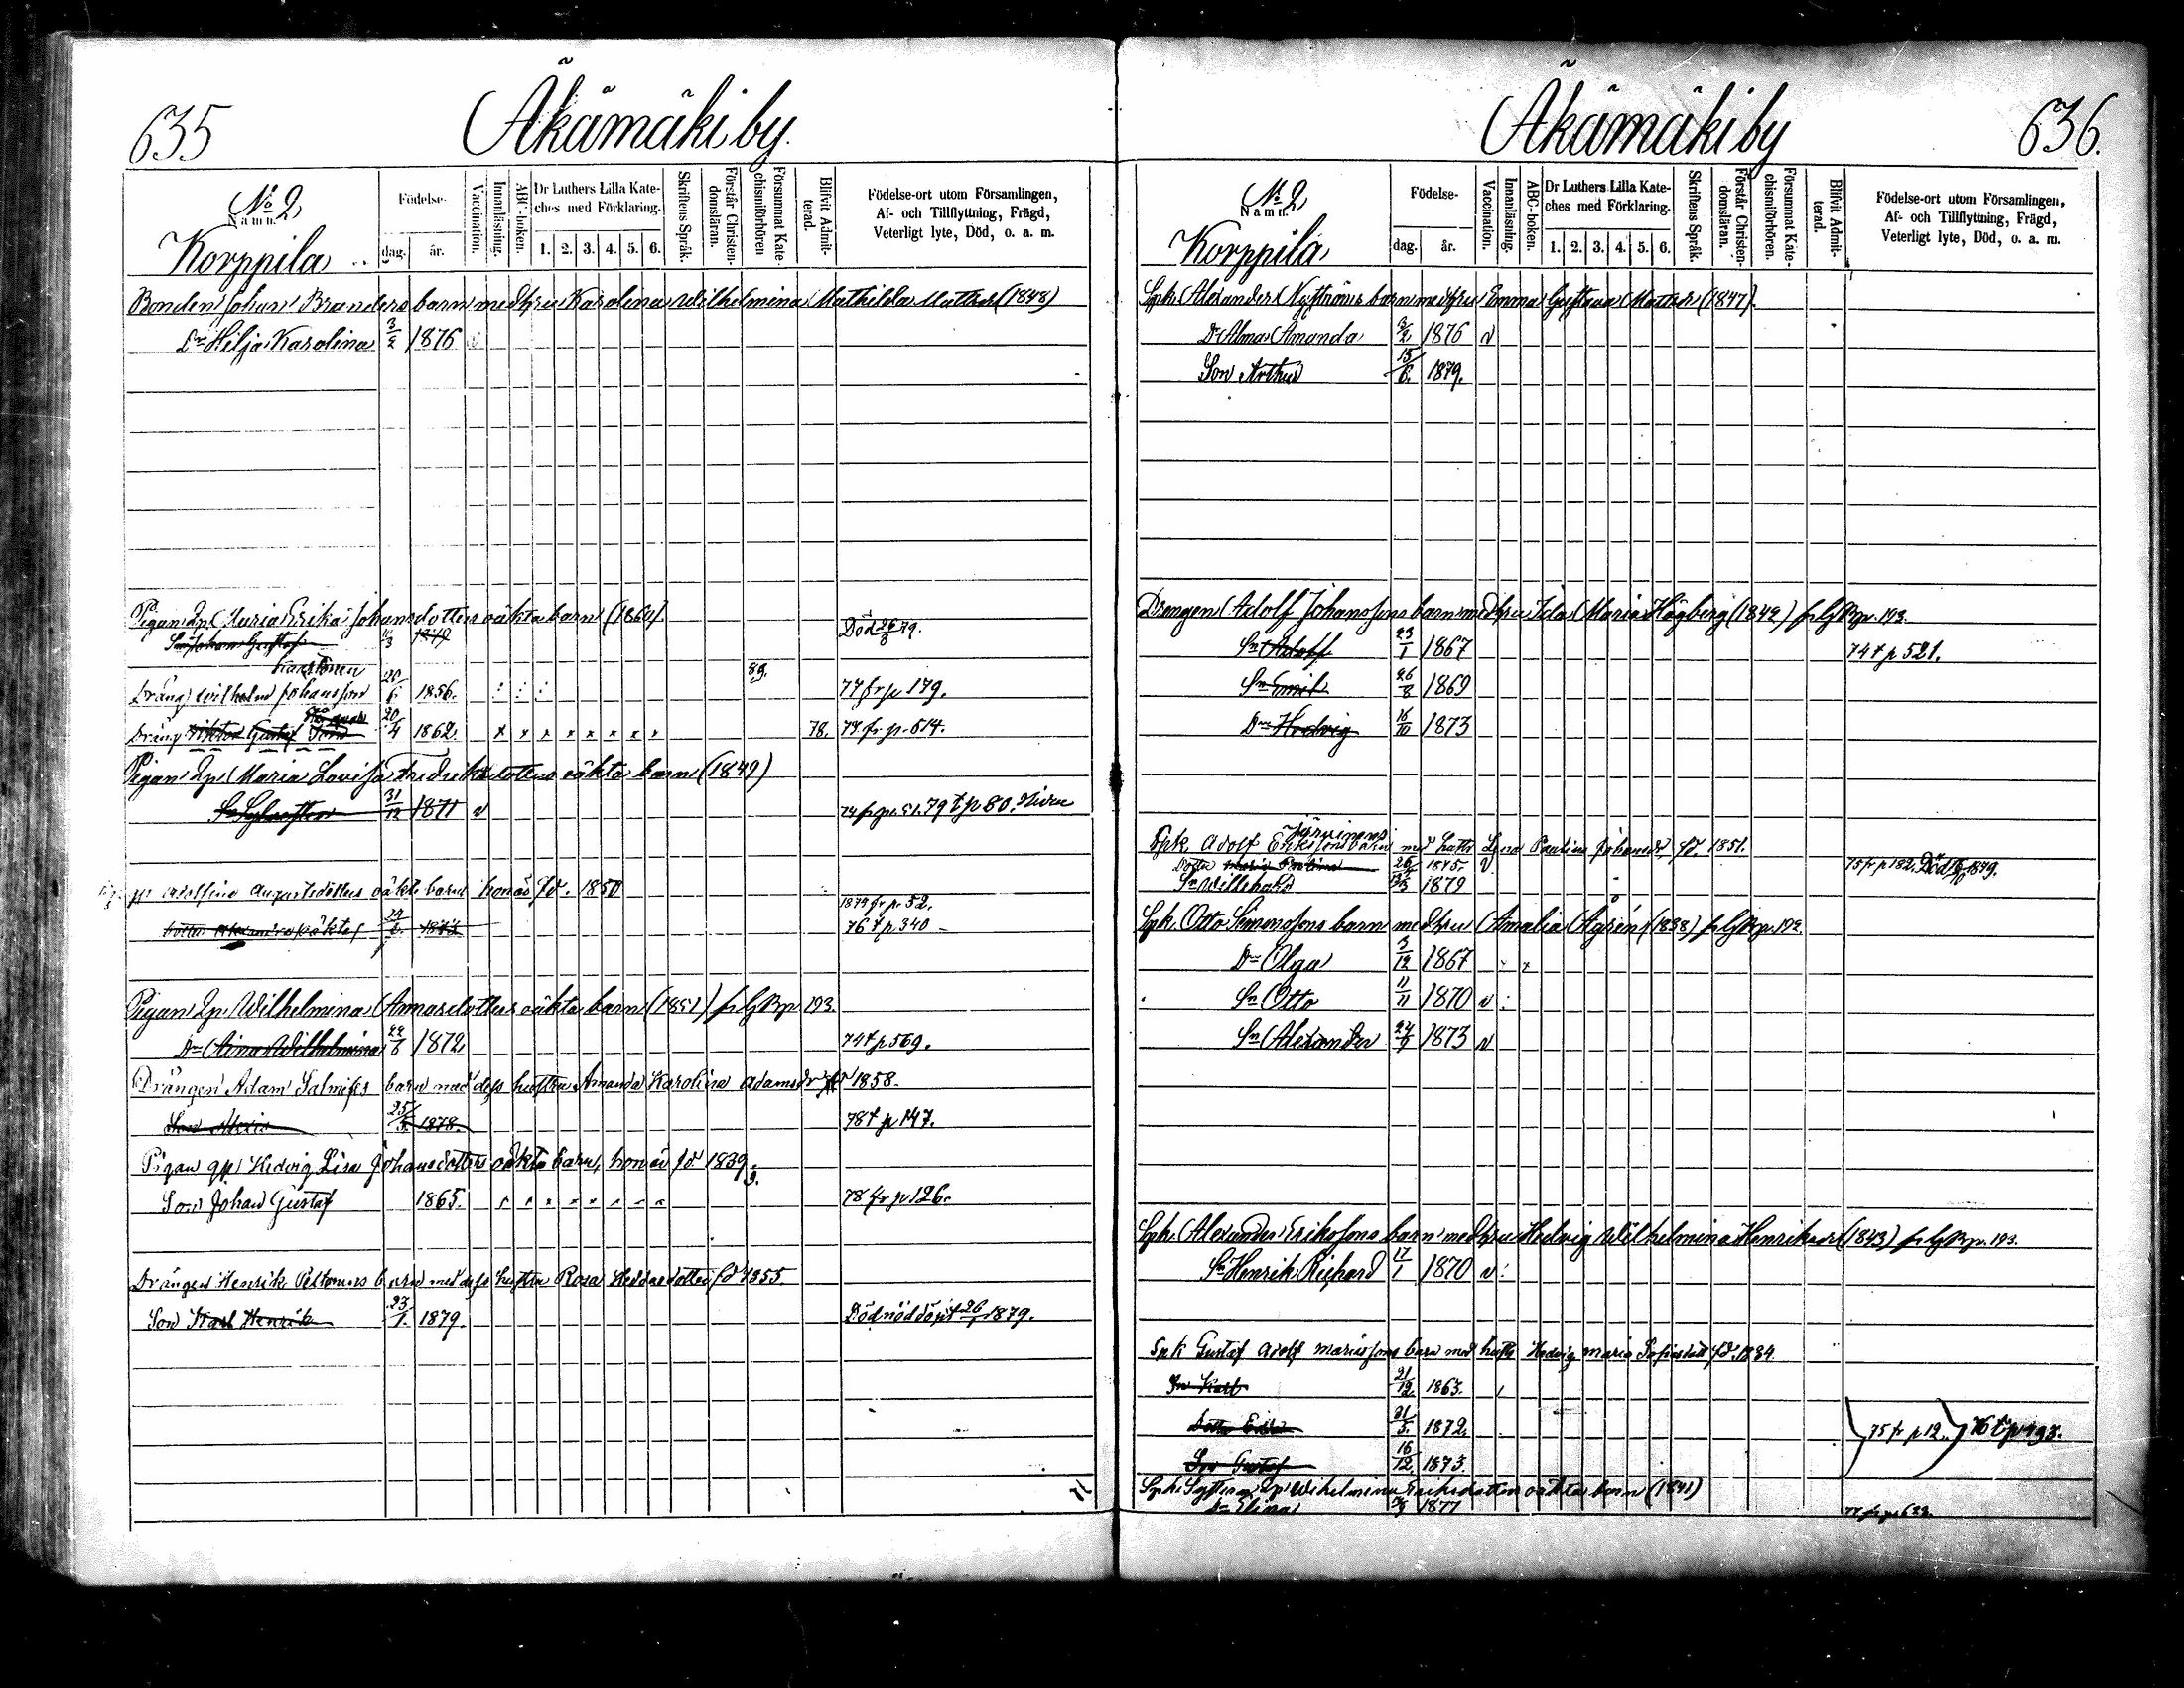 635
Äkämäki by.
No 2,
Namn.
Korppila
Födelse-
dag.
år.
Vaccination.
Innanläsning.
ABC-boken.
Dr Luthers Lilla Kate-
ches med Förklaring.
1. 2. 3. 4. 5. 6.
Skriftens Språk.
Förstår Christen-
domsläran.
Försummat Kate-
chismiförhören
Blifvit Admit-
terad.
Födelse-ort utom Församlingen,
Af- och Tillflyttning, Frägd,
Veterligt lyte, Död, o. a. m.
Bonden Johan Branders barn med hru Karolina Wilhelmina Mathilda Mattsdr (1848)
Dr Hilja Karolina 3/2 1876
Pigan Lp. Maria Erika Johansdotters oäkta barn (1860).
Sn Johan Gustaf 3 1879 Död 26/3 79.
Dräng Wilhelm Johansson 20/6 1856. 89. 77 fr p 179.
Dräng Viktor Gustaf 20/4 1862. x x x x x x x x 78. 77 fr p. 614.
Pigan Lp. Maria Lovisa Fredriksdotters oäkta barn (1849)
Sn Sylvester 31/12 1871 v 74 fr p. 51. 79 t p 80.
Adolfina Augustsdotters oäkta barn hon är fd. 1850
1874 fr p. 52.
76 t p. 340
Pigan Lp. Wilhelmina Annasdotters oäkta barn (1851) fr GBp. 193.
Dr Aina Wilhelmina 22/8 1872 74 t p 569.
Drängen Adam Salmis barn med dess hustru Amanda Karolina Adamsdr fd 1858.
Son Alexis 25/5. 1878. 78 t p 147.
Pigan qp. Hedvig Lisa Johansdotters oäkta barn, hon är fd 1839.
Son Johan Gustaf 1865. 78 fr p 126.
Drängen Henrik Peltonens barn med dess hustru Rosa Heddasdotter fd 1855.
Son Karl Henrik 23/1. 1879. Död nöddöpt 26/1 1879.
Äkämäki by
636.
No 2,
Namn.
Korppila
Födelse-
dag.
år.
Vaccination.
Innanläsning.
ABC-boken.
Dr Luthers Lilla Kate-
ches med Förklaring.
1. 2. 3. 4. 5. 6.
Skriftens Språk.
Förstår Christen-
domsläran.
Försummat Kate-
chismiförhören.
Blifvit Admit-
terad.
Födelse-ort utom Församlingen,
Af- och Tillflyttning, Frägd,
Veterligt lyte, Död, o. a. m.
Spk. Alexander Nyströms barn med hru Emma Gustava Mattsdr (1847)
Dr Alma Amanda 1876 v
Son Arthur 15/6. 1879.
Drengen Adolf Johanssons barn med hru Ida Maria Högberg (1842) fr GBp. 193.
Sn Adolf 23/1 1867 74 t p 521.
Sn Emil 26/8 1869
Dr Hedvig 16/10 1873
Järvinens
Spk. Adolf Erikssons barn med hustr Lena Paulina Johansdr fd. 1851.
Dotter Maria Paulina 1875. v 75 fr p 182. Död 1879.
Sn Willehard 1879
Spk. Otto Simonssons barn med hru Amalia Ågrén (1838) fr GBp. 192.
Dr Olga 3/12 1867
Sn Otto 11/11 1870 v :
Sn Alexander 24/9 1873 v
Spk. Alexander Erikssons barn med hru Hedvig Wilhelmina Henriksdr (1843) fr GBp. 193.
Sn Henrik Richard 17/1 1870 v :
Spk Gustaf Adolf Mariassons barn med hustr Hedvig Maria Sofiasdott fd. 1834.
Sn Karl 21/12. 1863.
Dotter 21/5. 1872. 75 fr p 12. 76 t p 193.
Son Gustaf 16/12. 1873.
Lp. Wilhelmina Eriksdotters oäkta barn (1841)
Dr Elina 1877